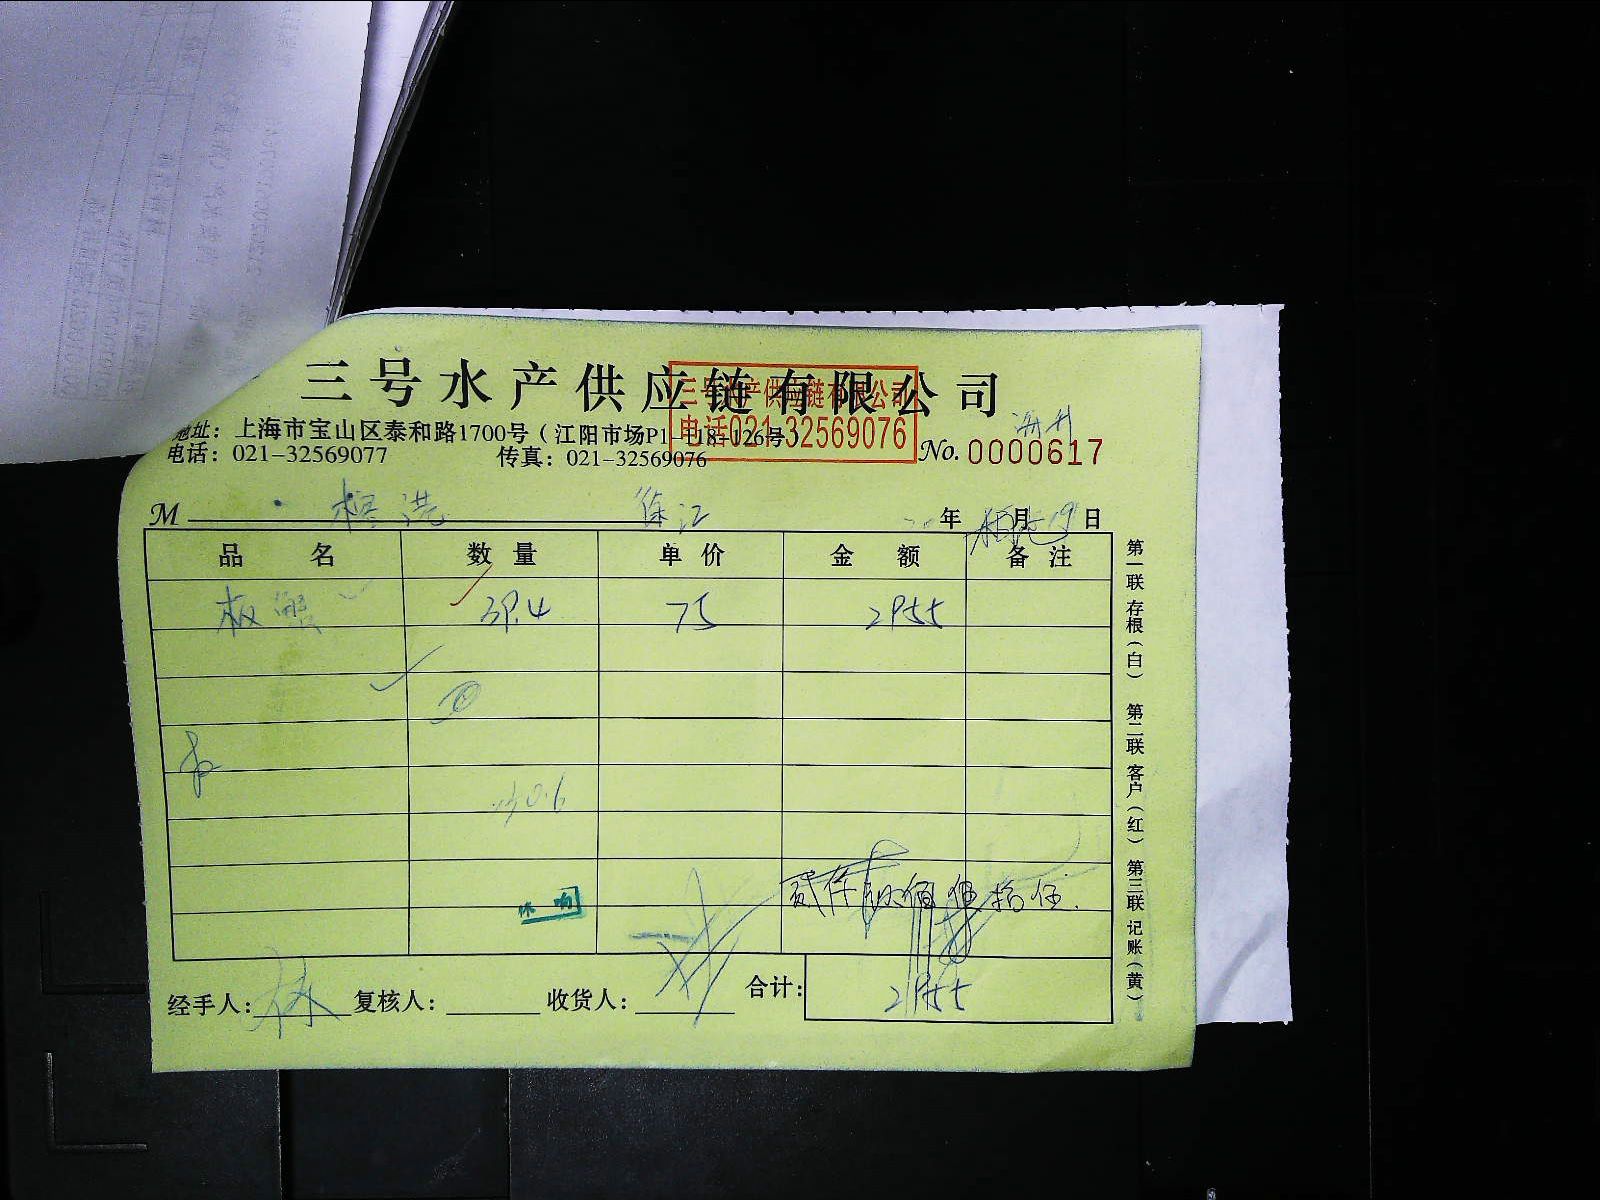 三号水产供应链有限公司
三号水产供应链有限公司
电话021-32569076
地址：上海市宝山区泰和路1700号（江阳市场P1-118-126号）
电话：021-32569077 传真：021-32569076
No. 0000617
M 徐江 年 月 19 日
品名 数量 单价 金额 备注
板蟹 39.4 75 2955
贰仟玖佰伍拾伍
合计： 2955
经手人： 林 复核人： 收货人：
第一联 存根（白） 第二联 客户（红） 第三联 记账（黄）